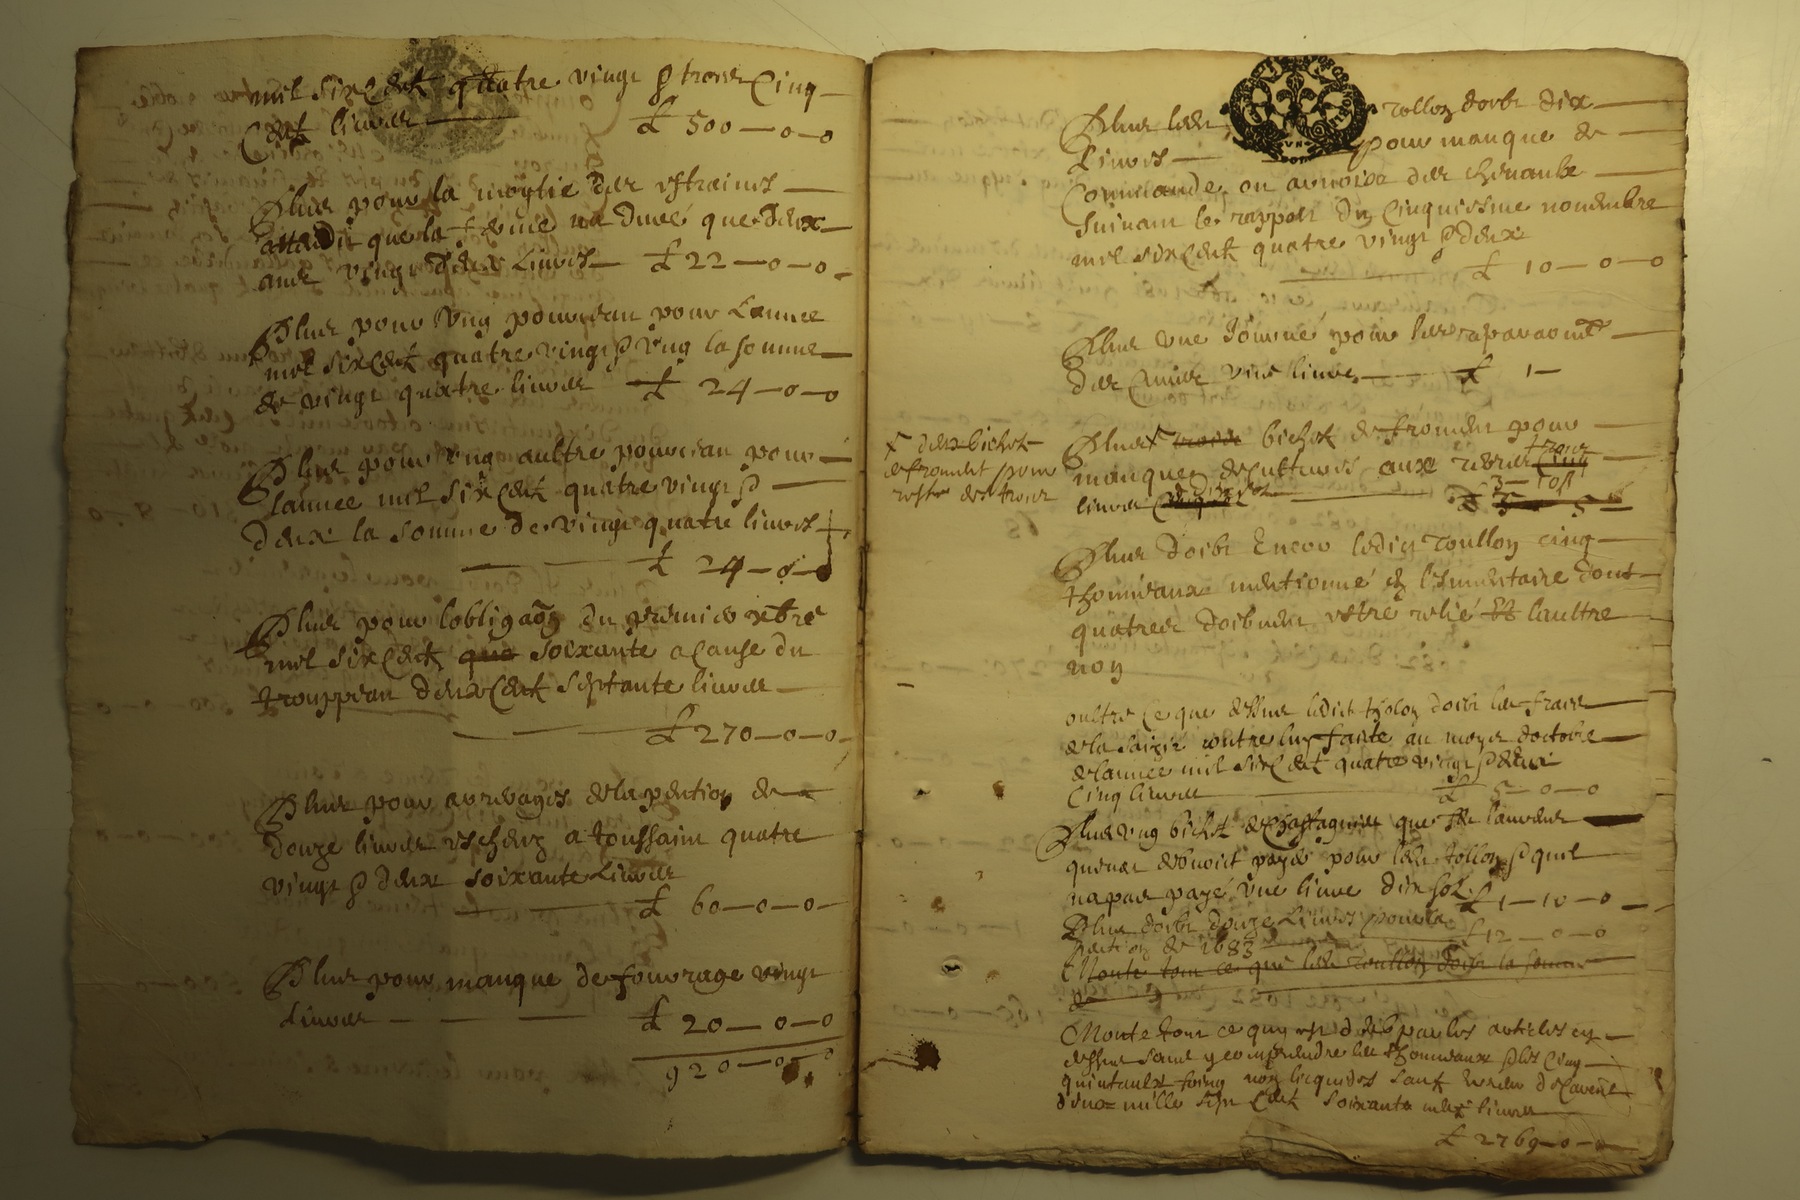 mil six cent quatre vingt & trois Cinq
Cent livres £ 500—0—0
Plus pour la moytié des estraines
attendu que la ferme na duré que deux
ans vingt deux Livres £ 22—0—0
Plus pour Ung pourceau pour Lannee
mil six cent quatre vingt & Ung la somme
de vingt quatre livres £ 24—0—0
Plus pour ung aultre pourceau pour
lannee mil six cent quatre vingt &
deux la somme de vingt quatre livres
£ 24—0—0
Plus pour lobligaõn du premier xbre
mil six cent soixante a cause du
trouppeau deux cent septante livres
£ 270—0—0
Plus pour arrerages de la pention de
douze livres escheuz a toussaint quatre
vingt & deux soixante Livres
£ 60—0—0
Plus pour manque de fourrage vingt
Livres £ 20—0—0
920—0—0
Plus ledit tollon doibt dix
Livres pour manque de
suivant le rapport du Cinquiesme novembre
mil six cent quatre vingt & deux
£ 10—0—0
Plus une Journé pour les
des une livre £ 1—
x deux bichet
de froment pour
reste des trois
Plus x trois bichet de froment pour
manque de aux terres trois
livres dix sol 3—10s
Plus doibt Encor ledit toullon cinq
thonneaux mentionné en l'Inventaire dont
quatres doibvent estre relié Et laultre
non
oultre ce que dessus ledict tholon doibt les frais
de la saizie contre luy faite au moys doctobre
de lannee mil six cent quatre vingt & deux
Cinq livres £ 5—0—0
Plus ung bichet de chastagnes que
devoict payer pour ledit tollon & quil
na pas payé une livre dix sol £ 1—10—0
Plus doibt douze Livres pour la
pention de 1683 £ 12—0—0
Monte tout ce que ledit toullon doibt la somme
de
Monte tout ce quy est deub par les articles cy
dessus sans y comprendre les thonneaux & les cinq
quintaulx foing non licquides sauf
deux mille sept cent soixante neuf livres
£ 2769—0—0